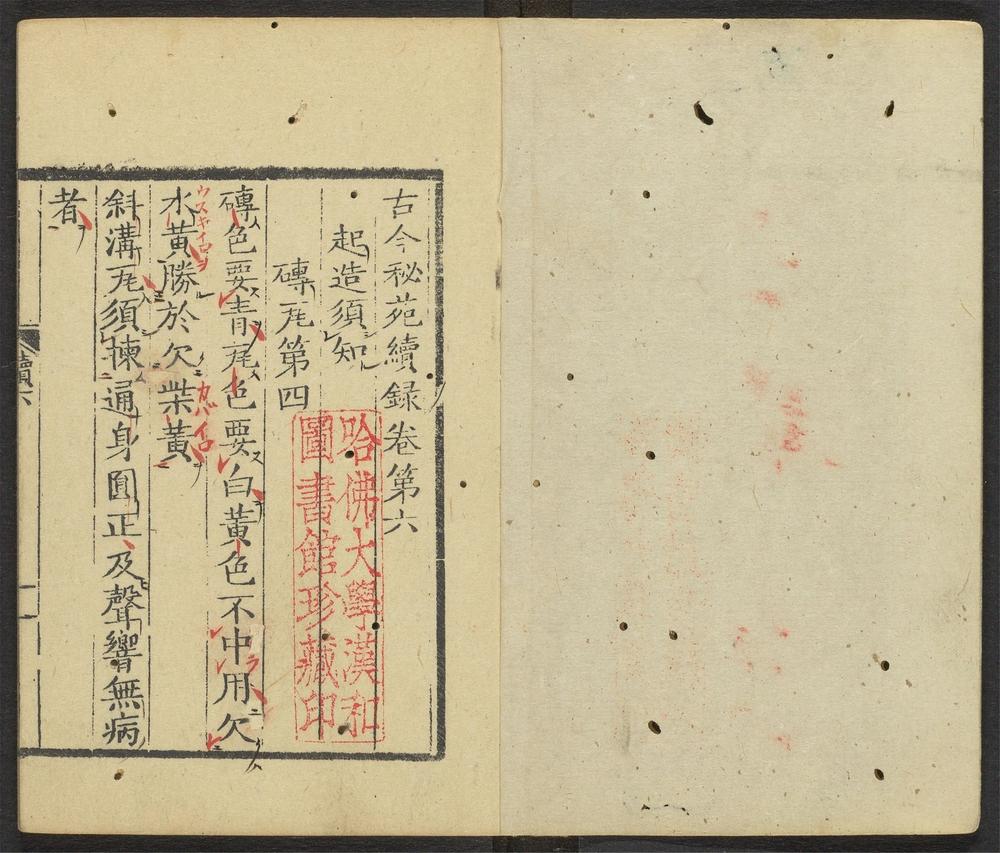 古今秘苑續録卷第六
起造須知
磚瓦第四
磚色要青瓦色要白黃色不中用欠
水黃勝於欠柴黃
ウスキイロヲ
カバイロ
斜溝瓦須揀通身圓正及聲響無病
者
續六
哈佛大學漢和
圖書館珍藏印